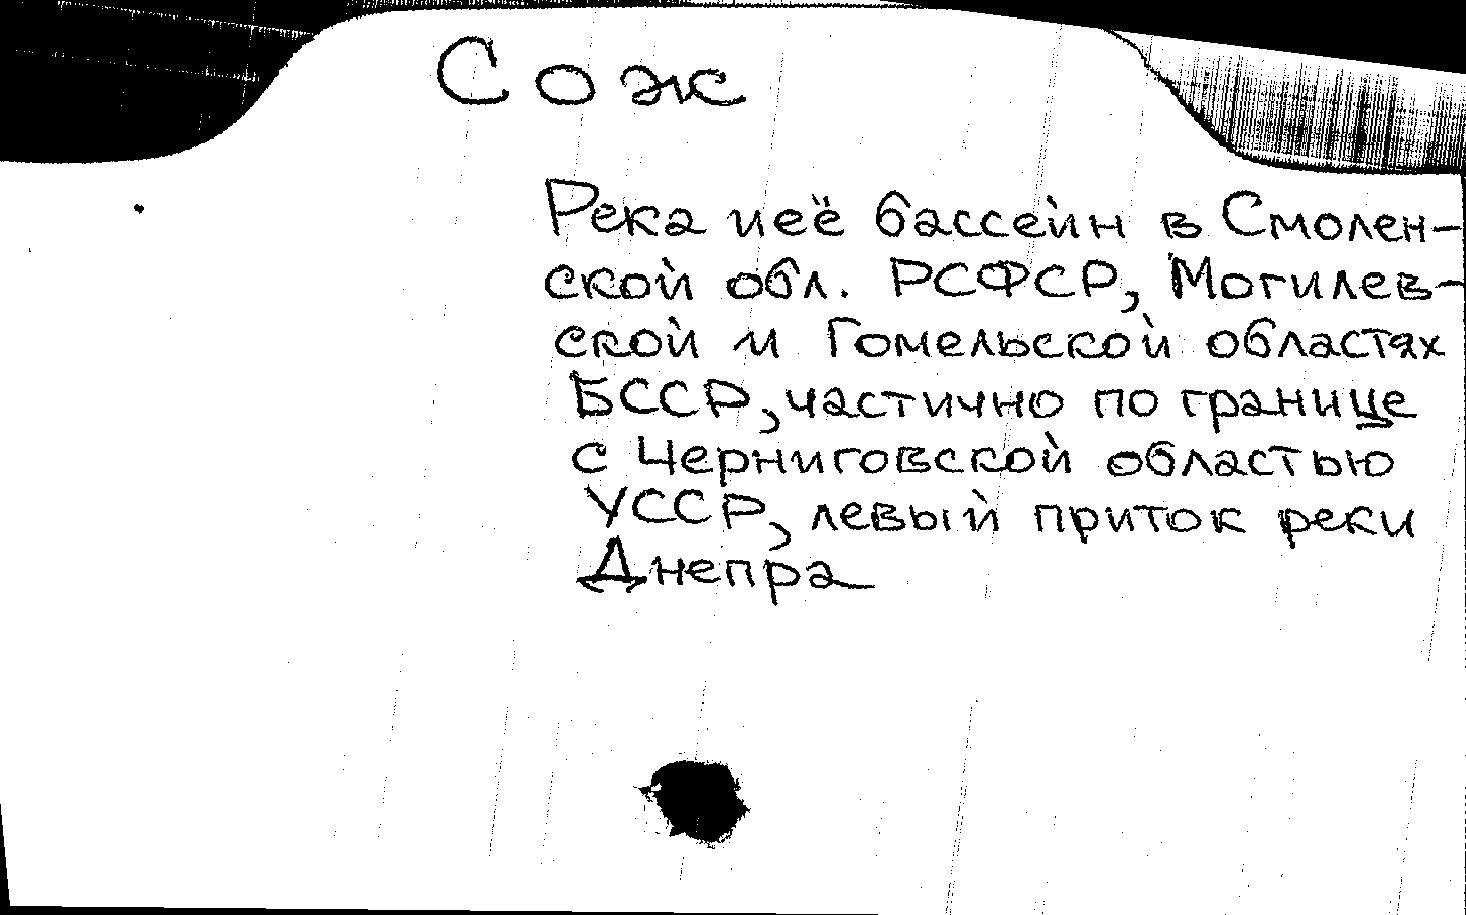 Сож
Река и её бассейн в Смолен-
ской обл. РСФСР, Могилев-
ской и Гомельской областях
БССР, частично по границе
с Черниговской областью
УССР, левый приток реки
Днепра